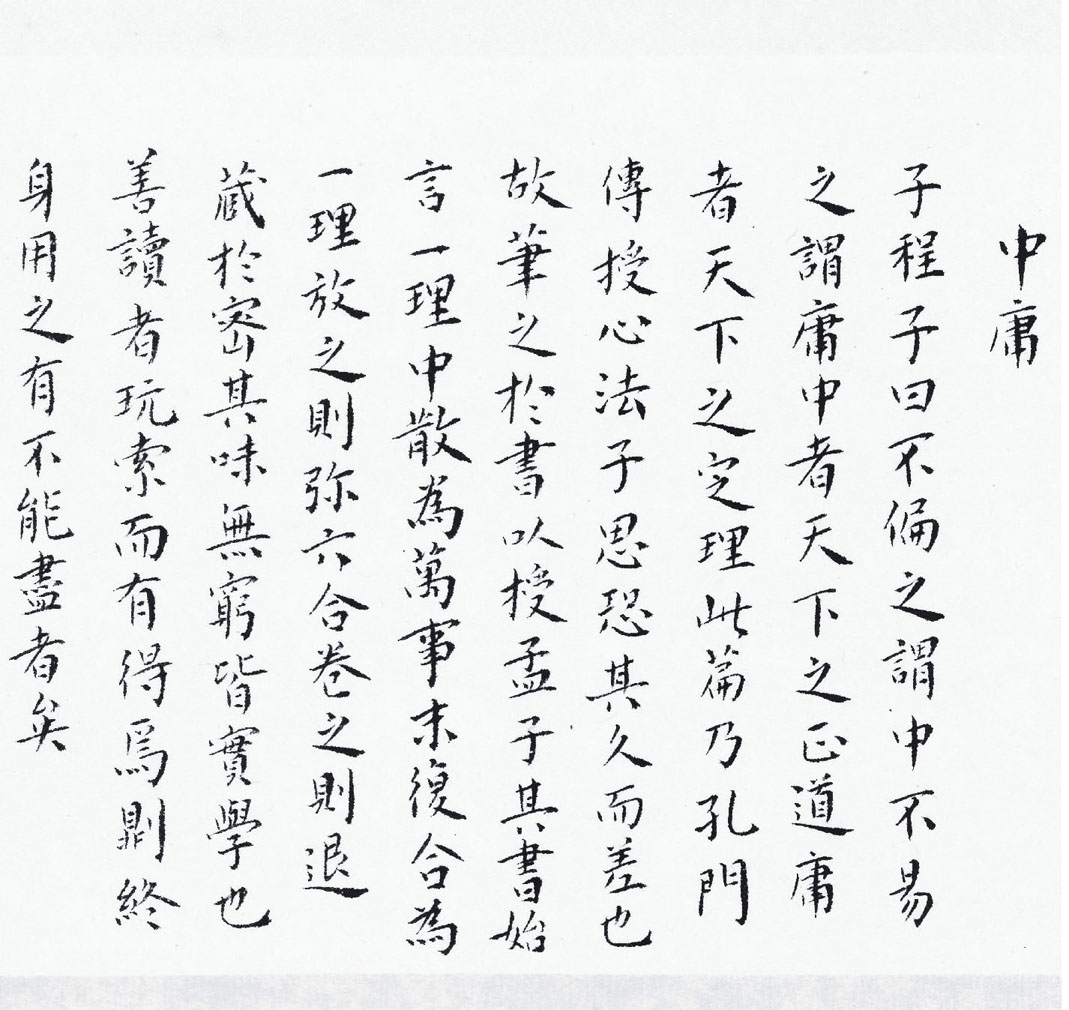 中庸
子程子曰不偏之謂中不易
之謂庸中者天下之正道庸
者天下之定理此篇乃孔門
傳授心法子思恐其久而差也
故筆之於書以授孟子其書始
言一理中散為萬事末復合為
一理放之則弥六合卷之則退
蔵於密其味無窮皆實學也
善讀者玩索而有得焉則終
身用之有不能盡者矣